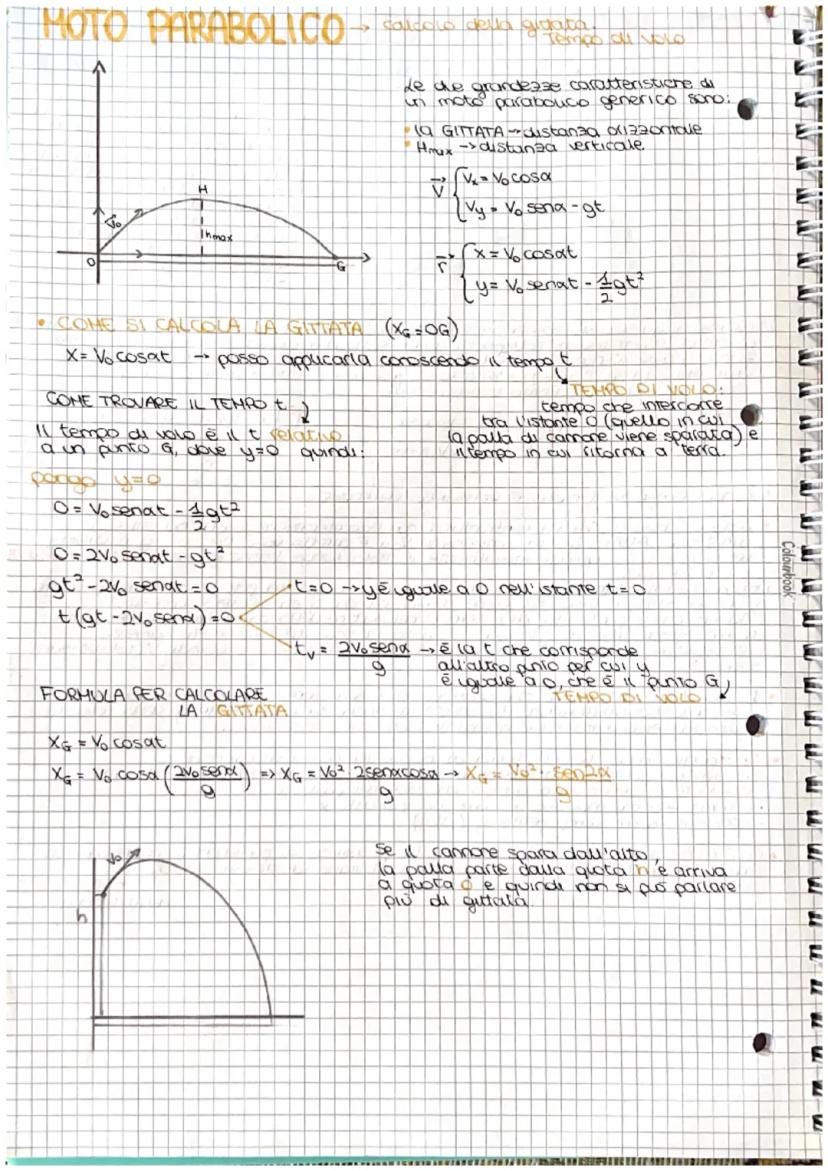 MOTO PARABOLICO → calcolo della gittata.
Tempo di volo
Le due grandezze caratteristiche di
un moto parabolico generico sono:
• la GITTATA → distanza orizzontale
• Hmax → distanza verticale
V { Vx = V₀ cosα
Vy = V₀ senα - gt
r { x = V₀ cosαt
y = V₀ senαt - 1/2 gt²
H
V₀
hmax
O
G
• COME SI CALCOLA LA GITTATA (XG = OG)
X = V₀ cosαt → posso applicarla conoscendo il tempo t
TEMPO DI VOLO:
tempo che intercorre
tra l'istante 0 (quello in cui
la palla di cannone viene sparata) e
il tempo in cui ritorna a terra.
COME TROVARE IL TEMPO t
Il tempo di volo è il t relativo
a un punto G, dove y=0 quindi:
pongo y=0
0 = V₀ senαt - 1/2 gt²
0 = 2V₀ senαt - gt²
gt² - 2V₀ senαt = 0
t (gt - 2V₀ senα) = 0
t=0 → y è uguale a 0 nell'istante t=0
tv = 2V₀ senα / g → è la t che corrisponde
all'altro punto per cui y
è uguale a 0, che è il punto G
TEMPO DI VOLO
FORMULA PER CALCOLARE
LA GITTATA
XG = V₀ cosαt
XG = V₀ cosα (2V₀ senα / g) => XG = V₀² · 2senαcosα / g → XG = V₀² · sen2α / g
V₀
h
Se il cannone spara dall'alto,
la palla parte dalla quota h e arriva
a quota 0 e quindi non si può parlare
più di gittata.
Colourbook